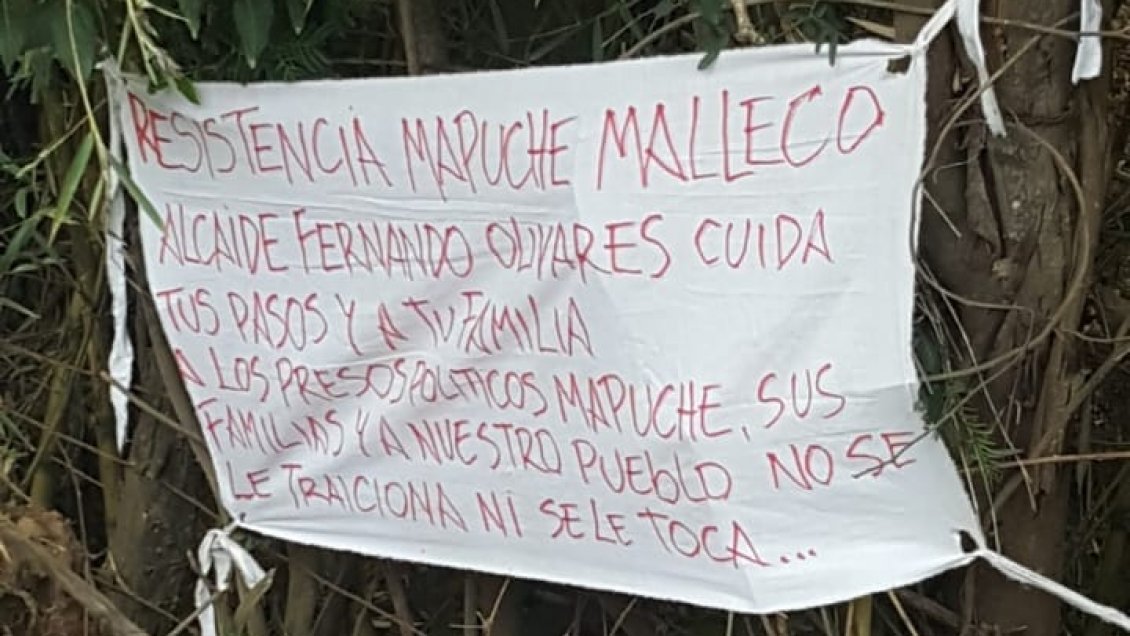 RESISTENCIA MAPUCHE MALLECO
ALCAIDE FERNANDO OLIVARES CUIDA
TUS PASOS Y A TU FAMILIA
A LOS PRESOS POLITICOS MAPUCHE, SUS
FAMILIAS Y A NUESTRO PUEBLO NO SE
LE TRAICIONA NI SE LE TOCA...